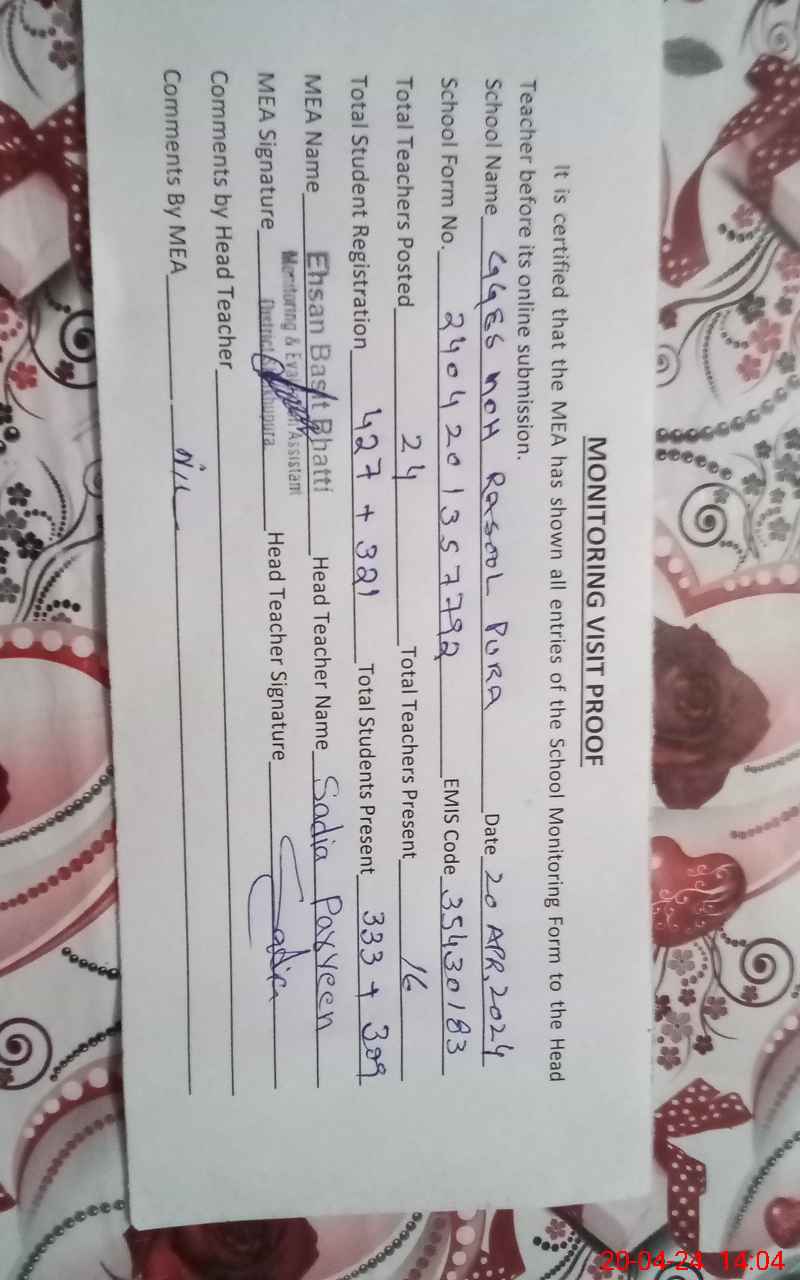 MONITORING VISIT PROOF
It is certified that the MEA has shown all entries of the School Monitoring Form to the Head
Teacher before its online submission.
School Name GGES MOH RASOOL PURA Date 20 APR, 2024
School Form No. 2404201357792 EMIS Code 35430183
Total Teachers Posted 24 Total Teachers Present 16
Total Student Registration 427 + 321 Total Students Present 333 + 309
MEA Name Ehsan Basit Bhatti Head Teacher Name Sadia Parveen
Monitoring & Evaluation Assistant
MEA Signature District Head Teacher Signature Sadia
Comments by Head Teacher
Comments By MEA Nil
20-04-24 14:04